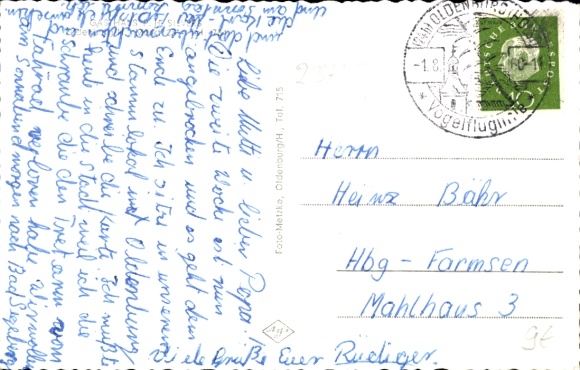 Liebe Mutti u. lieber Papa!
Die zweite Woche ist nun
angebrochen und es geht dem
Ende zu. Ich sitze in unserem
Stammlokal mit Oldenburg
und schreibe die Karte. Ich mußte
heute in die Stadt weil ich die
Schraube die den Tretarm vom
Fahrrad verloren habe. Wir wollen
am Sonnabendmorgen nach Bad Segeberg
und dort übernachten
und am Sonntag
Viele Grüße Euer Rüdiger.
Foto-Metzke, Oldenburg/H., Tel. 715
Agfa
OLDENBURG
-1.8.
Vogelfluglinie
DEUTSCHE BUNDESPOST
10
Herrn
Heinz Bähr
Hbg - Farmsen
Mahlhaus 3
9€